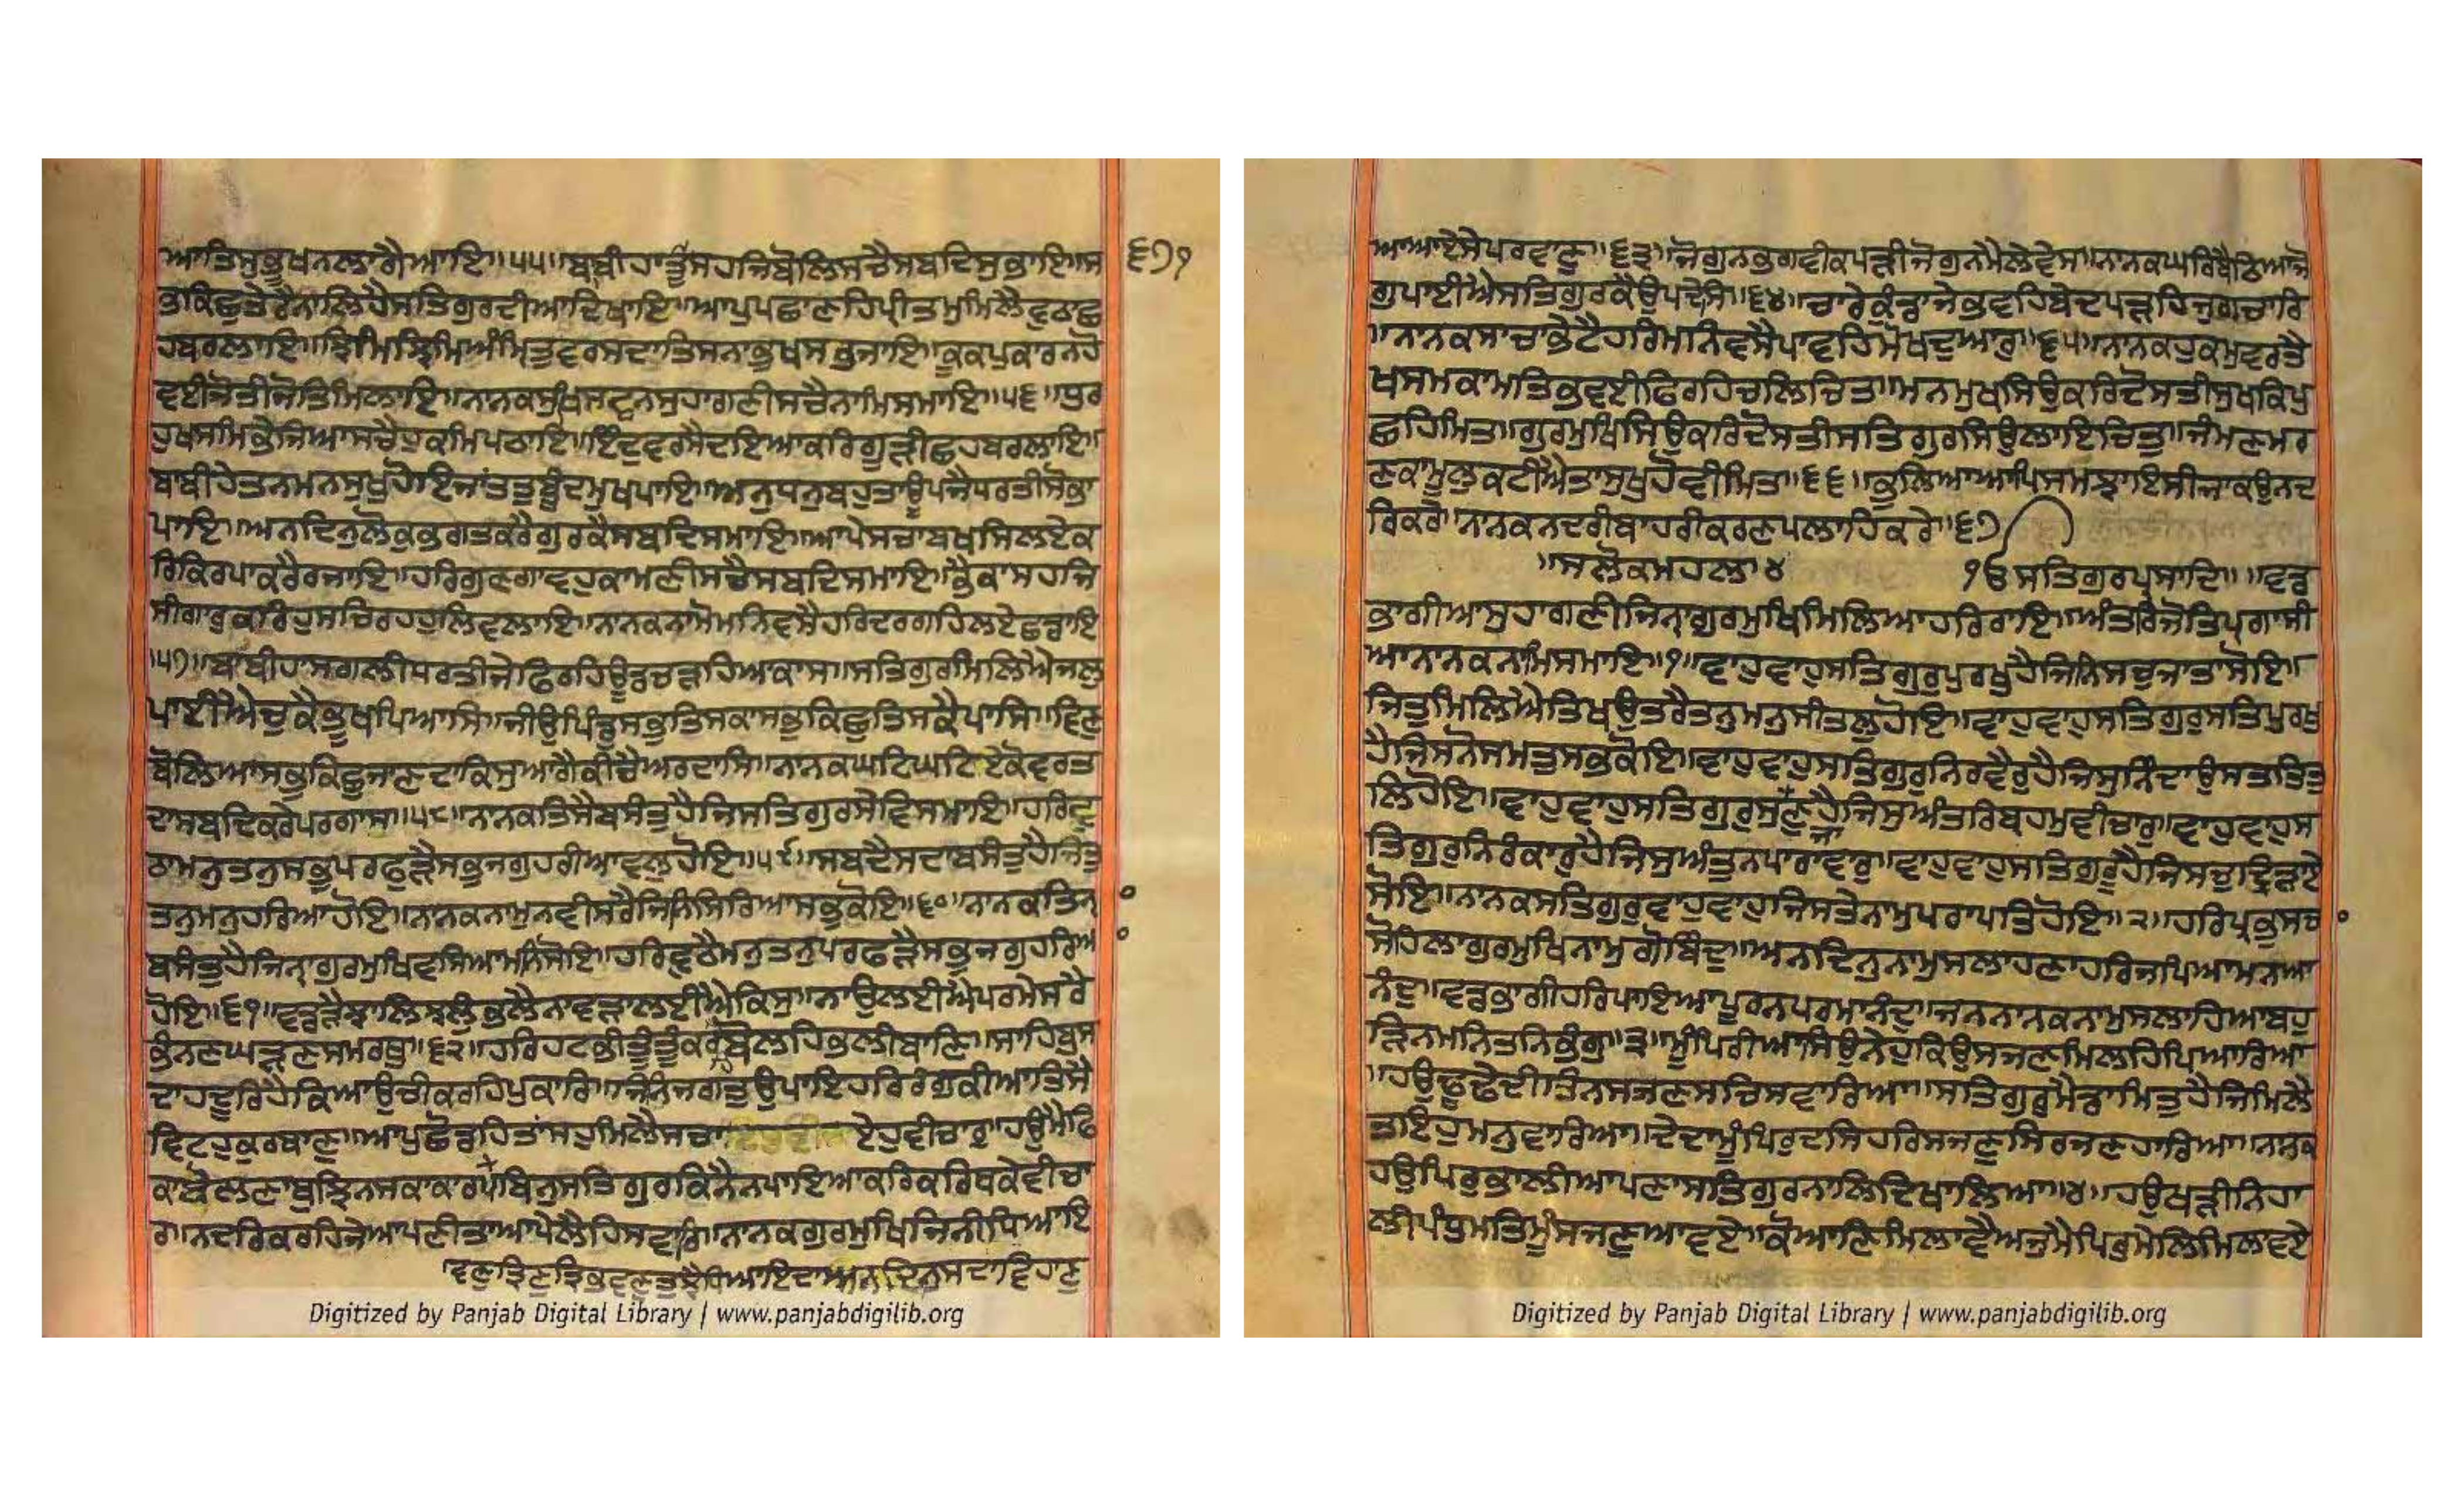 ਆਤਿਸੁਭੁਖਨਲਾਗੈਆਇ॥੫੫॥ਬਬੀਹਾਤੂੰਸਹਜਿਬੋਲਿਸਚੈਸਬਦਿਸੁਭਾਇ॥ਸ
੬੭੧
ਭੁਕਿਛੁਤੇਰੈਨਾਲਿਹੈਸਤਿਗੁਰਦੀਆਦਿਖਾਇ॥ਆਪੁਪਛਾਣਹਿਪ੍ਰੀਤਮੁਮਿਲੈਵੁਠਾਛ
ਹਬਰਲਾਇ॥ਝਿਮਿਝਿਮਿਅੰਮ੍ਰਿਤੁਵਰਸਦਾਤਿਸਨਾਭੁਖਸਭੁਜਾਇ॥ਕੂਕਪੁਕਾਰਨਹੋ
ਵਈਜੋਤੀਜੋਤਿਮਿਲਾਇ॥ਨਾਨਕਸੁਖਿਸਵਨੑਸੁਹਾਗਣੀਸਚੈਨਾਮਿਸਮਾਇ॥੫੬॥ਧੁਰ
ਹੁਖਸਮਿਭੇਜਿਆਸਚੈਹੁਕਮਿਪਠਾਇ॥ਇੰਦੁਵਰਸੈਦਇਆਕਰਿਗੂੜੀਛਹਬਰਲਾਇ॥
ਬਬੀਹੇਤਨਮਨਸੁਖੁਹੋਇਜਾਂਤਤੁਬੂੰਦਮੁਖਪਾਇ॥ਅਨੁਧਨੁਬਹੁਤਾਉਪਜੈਧਰਤੀਸੋਭਾ
ਪਾਇ॥ਅਨਦਿਨੁਲੋਕੁਭਗਤਕਰੇਗੁਰਕੈਸਬਦਿਸਮਾਇ॥ਆਪੇਸਚਾਬਖਸਿਲਏਕ
ਰਿਕਿਰਪਾਕਰੈਰਜਾਇ॥ਹਰਿਗੁਣਗਾਵਹੁਕਾਮਣੀਸਚੈਸਬਦਿਸਮਾਇ॥ਭੈਕਾਸਹਜਿ
ਸੀਗਾਰੁਕਰਿਹੁਸਚਿਰਹਹੁਲਿਵਲਾਇ॥ਨਾਨਕਨਾਮੋਮਨਿਵਸੈਹਰਿਦਰਗਹਿਲਏਛਡਾਇ
॥੫੭॥ਬਾਬੀਹਾਸਗਲੀਧਰਤੀਜੇਫਿਰਹਿਊਡਿਚੜਹਿਅਕਾਸ॥ਸਤਿਗੁਰਮਿਲਿਐਜਲੁ
ਪਾਈਐਚੁਕੈਭੂਖਪਿਆਸ॥ਜੀਉਪਿੰਡੁਸਭੁਤਿਸਕਾਸਭੁਕਿਛੁਤਿਸਕੈਪਾਸਿ॥ਵਿਣੁ
ਬੋਲਿਆਸਭੁਕਿਛੁਜਾਣਦਾਕਿਸੁਆਗੈਕੀਚੈਅਰਦਾਸਿ॥ਨਾਨਕਘਟਿਘਟਿਏਕੋਵਰਤ
ਦਾਸਬਦਿਕਰੇਪਰਗਾਸ॥੫੮॥ਨਾਨਕਤਿਸੈਬਸੰਤੁਹੈਜਿਸਤਿਗੁਰਸੇਵਿਸਮਾਇ॥ਹਰਿਵੁ
ਠਾਮਨੁਤਨੁਸਭੁਪਰਫੜੈਸਭੁਜਗੁਹਰੀਆਵਲੁਹੋਇ॥੫੯॥ਸਬਦੈਸਦਾਬਸੰਤੁਹੈਜਿਤੁ
ਤਨੁਮਨੁਹਰਿਆਹੋਇ॥ਨਾਨਕਨਾਮੁਨਵੀਸਰੈਜਿਨਿਸਿਰਿਆਸਭੁਕੋਇ॥੬੦॥ਨਾਨਕਤਿਨਾ
ਬਸੰਤੁਹੈਜਿਨਾਗੁਰਮੁਖਿਵਸਿਆਮਨਿਸੋਇ॥ਹਰਿਵੁਠੈਮਨੁਤਨੁਪਰਫੜੈਸਭੁਜਗੁਹਰਿਆ
ਹੋਇ॥੬੧॥ਵਡੜੈਝਾਲਿਝਲੁੰਭਲੈਨਾਵੜਾਲਈਐਕਿਸੁ॥ਨਾਉਲਈਐਪਰਮੇਸਰੈ
ਭੰਨਣਘੜਣਸਮਰਥੁ॥੬੨॥ਹਰਿਹਟਭੀਤੂੰਤੂੰਕਰਹਿਬੋਲਹਿਭਲੀਬਾਣਿ॥ਸਾਹਿਬੁਸ
ਦਾਹਦੂਰਿਹੈਕਿਆਉਚੀਕਰਹਿਪੁਕਾਰਿ॥ਜਿਨਿਜਗਤੁਉਪਾਇਹਰਿਰੰਗੁਕੀਆਤਿਸੈ
ਵਿਟਹੁਕੁਰਬਾਣੁ॥ਆਪੁਛੋਡਹਿਤਾਂਸਹੁਮਿਲੈਸਚਾਏਹੁਵੀਚਾਰੁ॥ਹਉਮੈਫਿ
ਕਾਬੋਲਣਾਬੁਝਿਨਸਕਾਕਾਰ॥ਬਿਨੁਸਤਿਗੁਰਕਿਨੈਨਪਾਇਆਕਰਿਕਰਿਥਕੇਵੀਚਾ
ਰਾ॥ਨਦਰਿਕਰਹਿਜੇਆਪਣੀਤਾਆਪੇਲੈਹਿਸਵਾਰਿ॥ਨਾਨਕਗੁਰਮੁਖਿਜਿਨੀਧਿਆਇ
ਵਣੁਤ੍ਰਿਣੁਤ੍ਰਿਭਵਣੁਤੁਝੈਧਿਆਇਦਾਅਨਦਿਨੁਸਦਾਵਿਹਾਣ
ਆਆਏਸੇਪਰਵਾਣੁ॥੬੩॥ਜੋਗੁਨਭਗਵੀਕਪੜੀਜੋਗੁਨਮੈਲੇਵੇਸ॥ਨਾਨਕਘਰਿਬੈਠਿਆਜੋ
ਗੁਪਾਈਐਸਤਿਗੁਰਕੈਉਪਦੇਸਿ॥੬੪॥ਚਾਰੇਕੁੰਡਾਜੇਭਵਹਿਬੇਦਪੜਹਿਜੁਗਚਾਰਿ
॥ਨਾਨਕਸਾਚਾਭੇਟੈਹਰਿਮਨਿਵਸੈਪਾਵਹਿਮੋਖਦੁਆਰੁ॥੬੫॥ਨਾਨਕਹੁਕਮੁਵਰਤੈ
ਖਸਮਕਾਮਤਿਭਵਈਫਿਰਹਿਚਲਿਚਿਤ॥ਮਨਮੁਖਸਿਉਕਰਿਦੋਸਤੀਸੁਖਕਿਪੁ
ਛਹਿਮਿਤ॥ਗੁਰਮੁਖਿਸਿਉਕਰਿਦੋਸਤੀਸਤਿਗੁਰਸਿਉਲਾਇਚਿਤੁ॥ਜੰਮਣਮਰ
ਣਕਾਮੂਲੁਕਟੀਐਤਾਸੁਖੁਹੋਵੀਮਿਤ॥੬੬॥ਭੁਲਿਆਆਪਿਸਮਝਾਇਸੀਜਾਕਉਨਦ
ਰਿਕਰੇ॥ਨਾਨਕਨਦਰੀਬਾਹਰੀਕਰਣਪਲਾਹਕਰੇ॥੬੭
॥ਸਲੋਕਮਹਲਾ੪ ੧ੳਸਤਿਗੁਰਪ੍ਰਸਾਦਿ॥॥ਵਡ
ਭਾਗੀਆਸੁਹਾਗਣੀਜਿਨਾਗੁਰਮੁਖਿਮਿਲਿਆਹਰਿਰਾਇ॥ਅੰਤਰਿਜੋਤਿਪ੍ਰਗਾਸੀ
ਆਨਾਨਕਨਾਮਿਸਮਾਇ॥੧॥ਵਾਹੁਵਾਹੁਸਤਿਗੁਰੁਪੁਰਖੁਹੈਜਿਨਿਸਚੁਜਾਤਾਸੋਇ॥
ਜਿਤੁਮਿਲਿਐਤਿਖਉਤਰੈਤਨੁਮਨੁਸੀਤਲੁਹੋਇ॥ਵਾਹੁਵਾਹੁਸਤਿਗੁਰੁਸਤਿਪੁਰਖੁ
ਹੈਜਿਸਨੋਸਮਤੁਸਭਕੋਇ॥ਵਾਹੁਵਾਹੁਸਤਿਗੁਰੁਨਿਰਵੈਰੁਹੈਜਿਸੁਨਿੰਦਾਉਸਤਤਿਤੁ
ਲਿਹੋਇ॥ਵਾਹੁਵਾਹੁਸਤਿਗੁਰੁਸੁਜਾਣੁਹੈਜਿਸੁਅੰਤਰਿਬ੍ਰਹਮੁਵੀਚਾਰੁ॥ਵਾਹੁਵਾਹੁਸ
ਤਿਗੁਰੁਨਿਰੰਕਾਰੁਹੈਜਿਸੁਅੰਤੁਨਪਾਰਾਵਾਰੁ॥ਵਾਹੁਵਾਹੁਸਤਿਗੁਰੂਹੈਜਿਸਚੁਦ੍ਰਿੜਾਏ
ਸੋਇ॥ਨਾਨਕਸਤਿਗੁਰੁਵਾਹੁਵਾਹੁਜਿਸਤੇਨਾਮੁਪਰਾਪਤਿਹੋਇ॥੨॥ਹਰਿਪ੍ਰਭੁਸਚ
ਸੋਹਿਲਾਗੁਰਮੁਖਿਨਾਮੁਗੋਬਿੰਦੁ॥ਅਨਦਿਨੁਨਾਮੁਸਲਾਹਣਾਹਰਿਜਪਿਆਮਨਆ
ਨੰਦੁ॥ਵਡਭਾਗੀਹਰਿਪਾਇਆਪੂਰਨਪਰਮਾਨੰਦੁ॥ਜਨਨਾਨਕਨਾਮੁਸਲਾਹਿਆਬਹੁ
ੜਿਨਮਨਿਤਨਿਭੰਗੁ॥੩॥ਮੂੰਪਿਰੀਆਸਉਨੇਹੁਕਿਉਸਜਣਮਿਲਹਿਪਿਆਰਿਆ
॥ਹਉਢੂਢੇਦੀਤਿਨਸਜਣਸਚਿਸਵਾਰਿਆ॥ਸਤਿਗੁਰੁਮੈਡਾਮਿਤੁਹੈਜਿਮਿਲੈ
ਤਾਇਹੁਮਨੁਵਾਰਿਆ॥ਦੇਂਦਾਮੂੰਪਿਰੁਦਸਿਹਰਿਸਜਣੁਸਿਰਜਣਹਾਰਿਆ॥ਨਾਨਕ
ਹਉਪਿਰੁਭਾਲੀਆਪਣਾਸਤਿਗੁਰਨਾਲਿਦਿਖਾਲਿਆ॥੪॥ਹਉਖੜੀਨਿਹਾ
ਲੀਪੰਧੁਮਤਿਮੂੰਸਜਣੁਆਵਏ॥ਕੋਆਣਿਮਿਲਾਵੈਅਜੁਮੈਪਿਰੁਮੇਲਿਮਿਲਾਵਏ
Digitized by Panjab Digital Library | www.panjabdigilib.org
Digitized by Panjab Digital Library | www.panjabdigilib.org